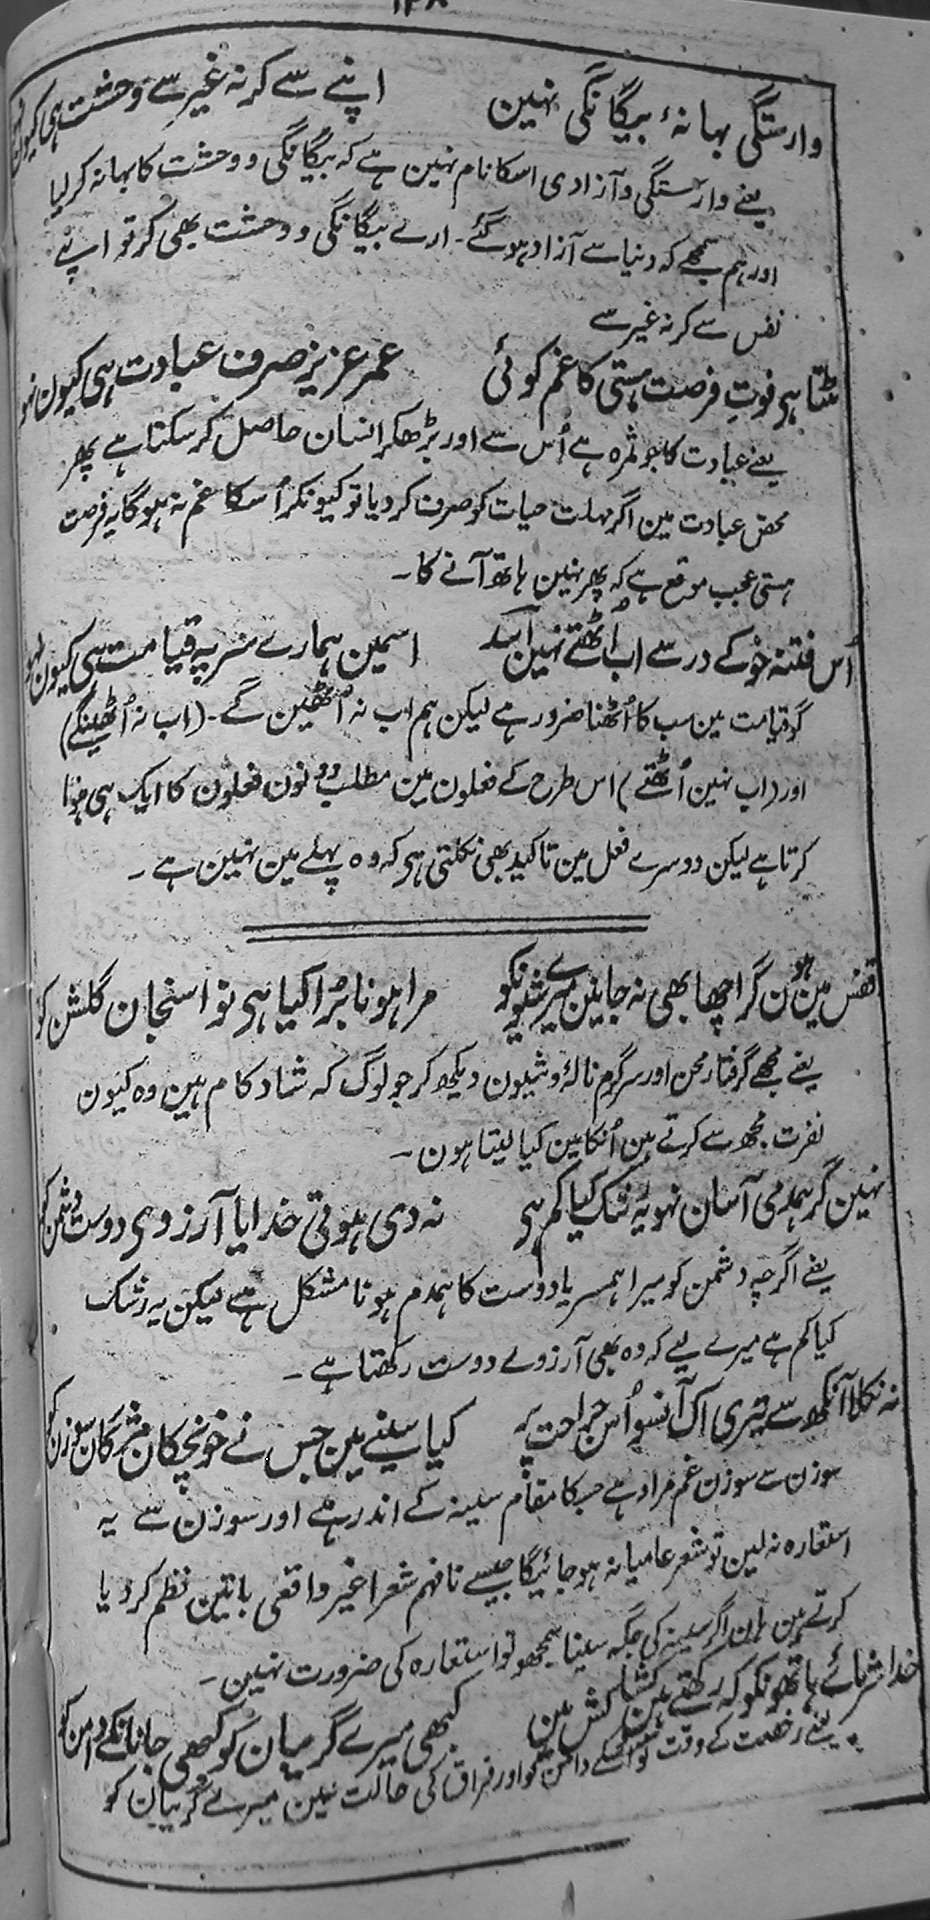 ۱۴۸
وارستگی بہانۂ بیگانگی نہین اپنے سے کر نہ غیر سے وحشت ہی کیون
یعنے وارستگی و آزادی اسکا نام نہین ہے کہ بیگانگی و وحشت کا بہانہ کر لیا
اور ہم سمجھے کہ دنیا سے آزاد ہو گئے۔ ارے بیگانگی و وحشت بھی کر تو اپنے
نفس سے کر نہ غیر سے
مٹتا ہی فوتِ فرصت ہستی کا غم کوئی عمر عزیز صرف عبادت ہی کیون نہو
یعنے عبادت کا جو ثمرہ ہے اُس سے اور بڑھکر انسان حاصل کر سکتا ہے پھر
محض عبادت مین اگر مہلت حیات کو صرف کر دیا تو کیونکر اُسکا غم نہ ہوگا یہ فرصت
ہستی عجب موقع ہے کہ پھر نہین ہاتھ آنے کا۔
اُس فتنہ خو کے در سے اب اُٹھتے نہین اسد اسمین ہمارے سر پہ قیامت ہی کیون نہو
گو قیامت مین سب کا اُٹھنا ضرور ہے لیکن ہم اب نہ اُٹھین گے۔ (اب نہ اُٹھینگے)
اور (اب نہین اُٹھتے) اس طرح کے فعلون مین مطلب دونون فعلون کا ایک ہی ہوا
کرتا ہے لیکن دوسرے فعل مین تاکید بھی نکلتی ہی کہ وہ پہلے مین نہین ہے۔
قفس مین ہون گر اچھا بھی نہ جانین میرے شیونکو مرا ہونا بُرا کیا ہی نواسنجان گلشن کو
یعنے مجھے گرفتار محن اور سرگرم نالۂ و شیون دیکھ کر جو لوگ کہ شاد کام ہین وہ کیون
نفرت مجھ سے کرتے ہین اُنکا مین کیا لیتا ہون۔
نہین گر ہمدمی آسان نہو یہ رشک کیا کم ہی نہ دی ہوتی خدایا آرزوی دوست دشمن کو
یعنے اگرچہ دشمن کو میرا ہمسر یا دوست کا ہمدم ہونا مشکل ہے لیکن یہ رشک
کیا کم ہے میرے لیے کہ وہ بھی آرزوے دوست رکھتا ہے۔
نہ نکلا آنکھ سے تیری اک آنسو اُس جراحت پر کیا سینے مین جس نے خونچکان مژگان سوزن کو
سوزن سے سوزن غم مراد ہے جسکا مقام سینہ کے اندر ہے اور سوزن سے یہ
استعارہ نہ لین تو شعر عامیانہ ہو جائیگا جیسے نافہم شعرا غیر واقعی باتین نظم کر دیا
کرتے ہین ہان اگر سینہ کی جگہ سینا سمجھو تو استعارہ کی ضرورت نہین۔
خدا شرمائے ہاتھونکو کہ رکھتے ہین کشاکش مین کبھی میرے گریبان کو کبھی جانانکے دامن کو
یعنے رخصت کے وقت تو اُسکے دامن کو اور فراق کی حالت مین میرے گریبان کو